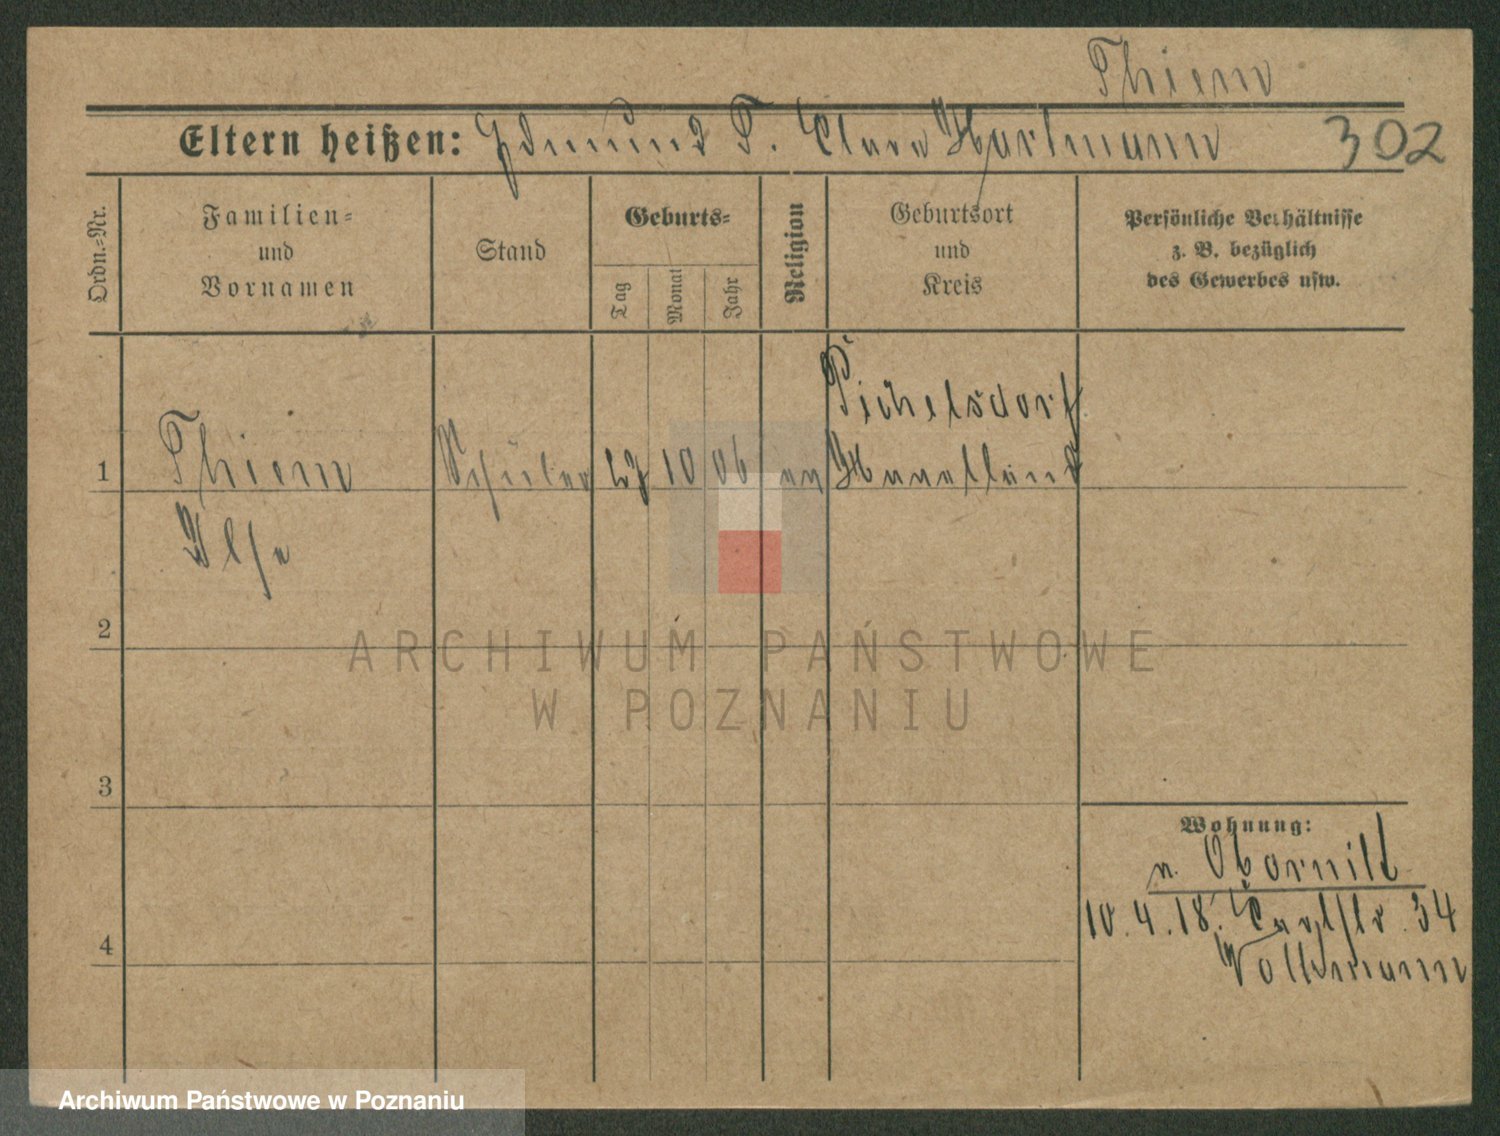 Thiem
Eltern heißen: Edmund T. Clara Hartmann 302
Ordn.=Nr.
Familien=
und
Vornamen
Stand
Geburts=
Tag
Monat
Jahr
Religion
Geburtsort
und
Kreis
Persönliche Verhältnisse
z. B. bezüglich
des Gewerbes usw.
Pichelsdorf
1 Thiem Schüler 10 06 ev Havelland
Ilse
2
ARCHIWUM PAŃSTWOWE
W POZNANIU
3
Wohnung:
n. Obornik
10.4.18. 34
4
Volkmann
Archiwum Państwowe w Poznaniu